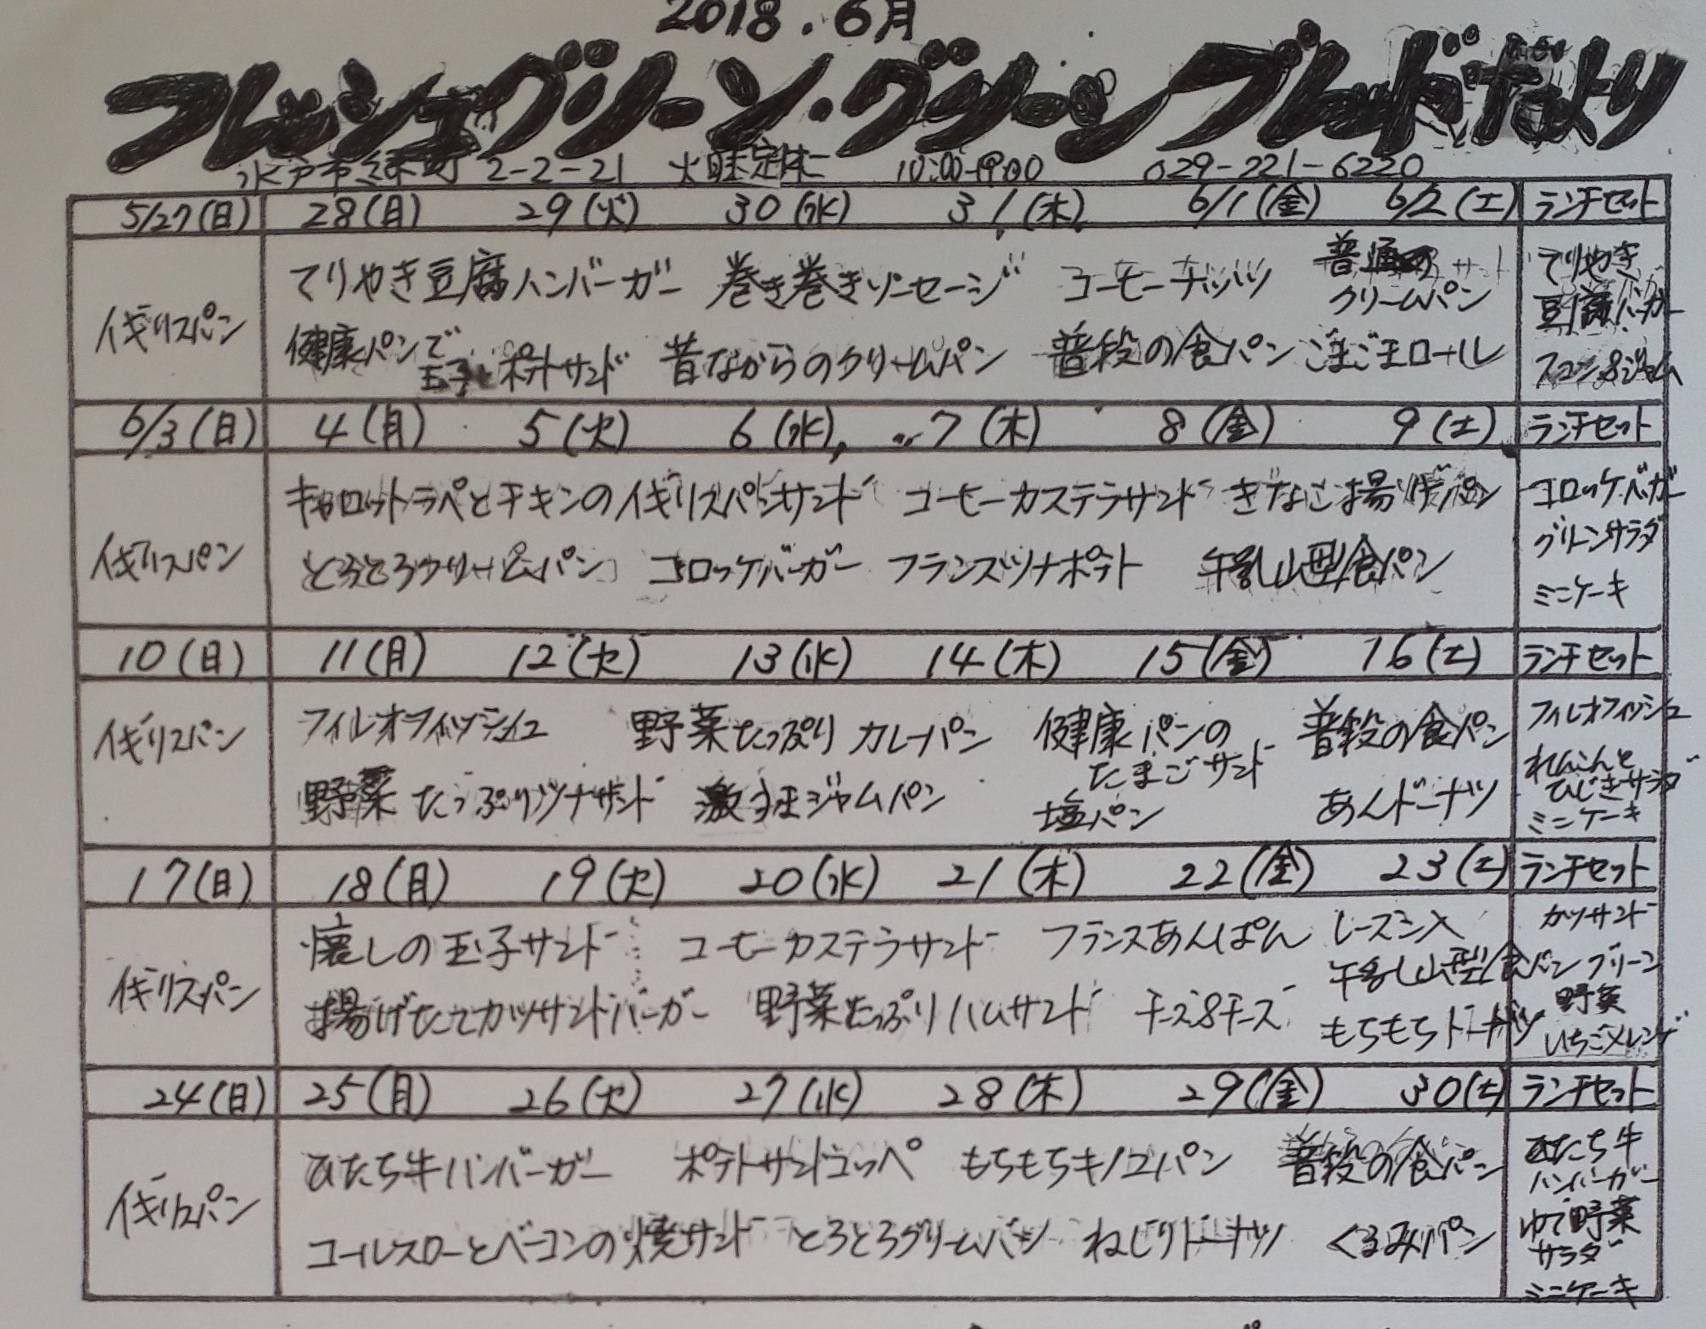 2018.6月
フレッシュグリーン・グリーンブレッドだより
水戸市緑町 2-2-21 火曜定休 10:00-19:00 029-221-6220
5/27(日) 28(月) 29(火) 30(水) 31(木) 6/1(金) 6/2(土) ランチセット
イギリスパン
てりやき豆腐ハンバーガー 巻き巻きソーセージ コーヒーナッツ 普通の
クリームパン
健康パンで
玉子とポテトサンド 昔ながらのクリームパン 普段の食パン ごまごまロール
てりやき
豆腐バーガー
スコン&ジャム
6/3(日) 4(月) 5(火) 6(水) 7(木) 8(金) 9(土) ランチセット
イギリスパン
キャロットラペとチキンのイギリスパンサンド コーヒーカステラサンド きなこ揚げパン
とろとろクリームパン コロッケバーガー フランスツナポテト 牛乳山型食パン
コロッケバーガー
グリーンサラダ
ミニケーキ
10(日) 11(月) 12(火) 13(水) 14(木) 15(金) 16(土) ランチセット
イギリスパン
フィレオフィッシュ 野菜たっぷりカレーパン 健康パンの
たまごサンド 普段の食パン
野菜たっぷりツナサンド 激甘ジャムパン 塩パン あんドーナツ
フィレオフィッシュ
れんこんと
ひじきサラダ
ミニケーキ
17(日) 18(月) 19(火) 20(水) 21(木) 22(金) 23(土) ランチセット
イギリスパン
懐しの玉子サンド コーヒーカステラサンド フランスあんぱん レーズン入
牛乳山型食パン
揚げたてカツサンドバーガー 野菜たっぷりハムサンド チーズ&チーズ もちもちドーナツ
カツサンド
グリーン
野菜
いちごメレンゲ
24(日) 25(月) 26(火) 27(水) 28(木) 29(金) 30(土) ランチセット
イギリスパン
ひたち牛ハンバーガー ポテトサンドコッペ もちもちキノコパン 普段の食パン
コールスローとベーコンの焼サンド とろとろクリームパン ねじりドーナツ くるみパン
ひたち牛
ハンバーガー
ゆで野菜
サラダ
ミニケーキ